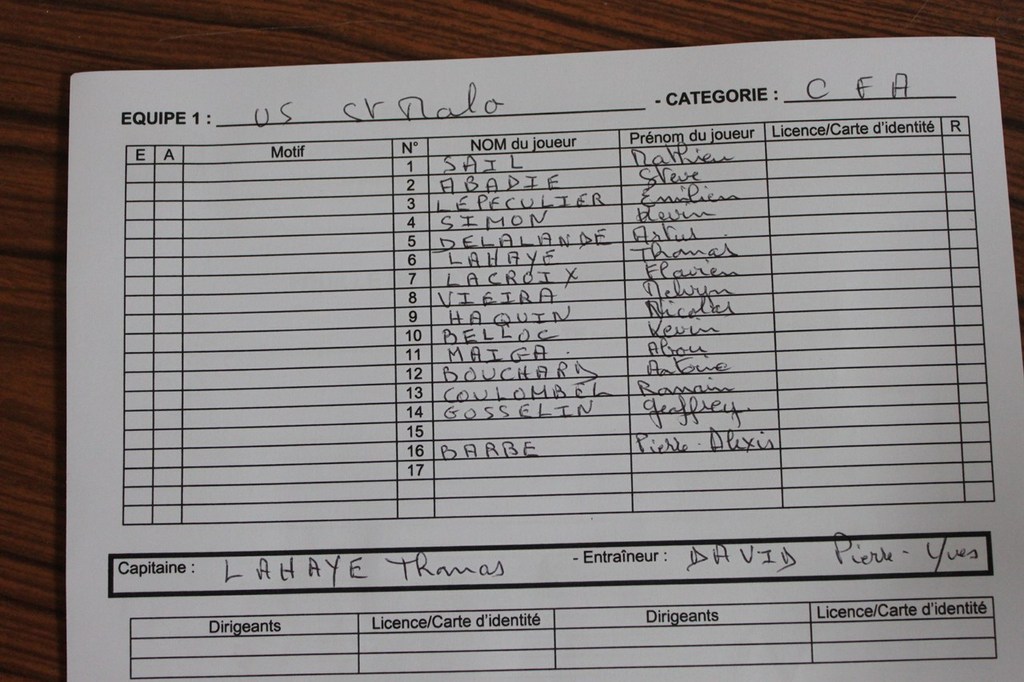 EQUIPE 1 : US St Malo - CATEGORIE : C F A
E A Motif N° NOM du joueur Prénom du joueur Licence/Carte d'identité R
1 SAIL Mathieu
2 ABADIE Steve
3 LEPECULIER Emilien
4 SIMON Kevin
5 DELALANDE Artus
6 LAHAYE Thomas
7 LACROIX Flavien
8 VIEIRA Melvyn
9 HAQUIN Nicolas
10 BELLOC Kevin
11 MAIGA Abou
12 BOUCHARD Antoine
13 COULOMBEL Romain
14 GOSSELIN Geoffrey
15
16 BARBE Pierre-Alexis
17
Capitaine : LAHAYE Thomas - Entraîneur : DAVID Pierre-Yves
Dirigeants Licence/Carte d'identité Dirigeants Licence/Carte d'identité